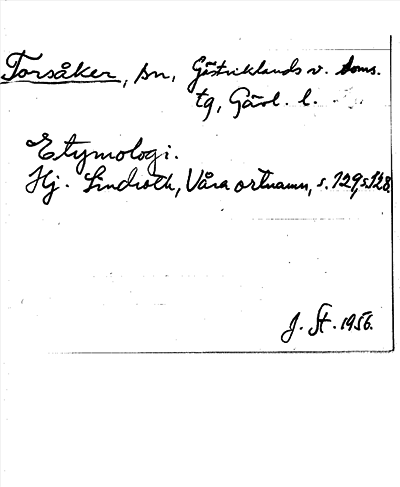 Torsåker, sn, Gästriklands v. doms.
tg, Gävl. l.
Etymologi.
Hj. Lindroth, Våra ortnamn, s. 129, s. 128.
J. St. 1956.